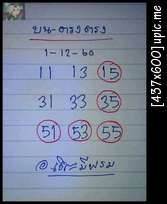 บน-ตรงตรง
1-12-60
11 13 15
31 33 35
51 53 55
[437x600] upic.me